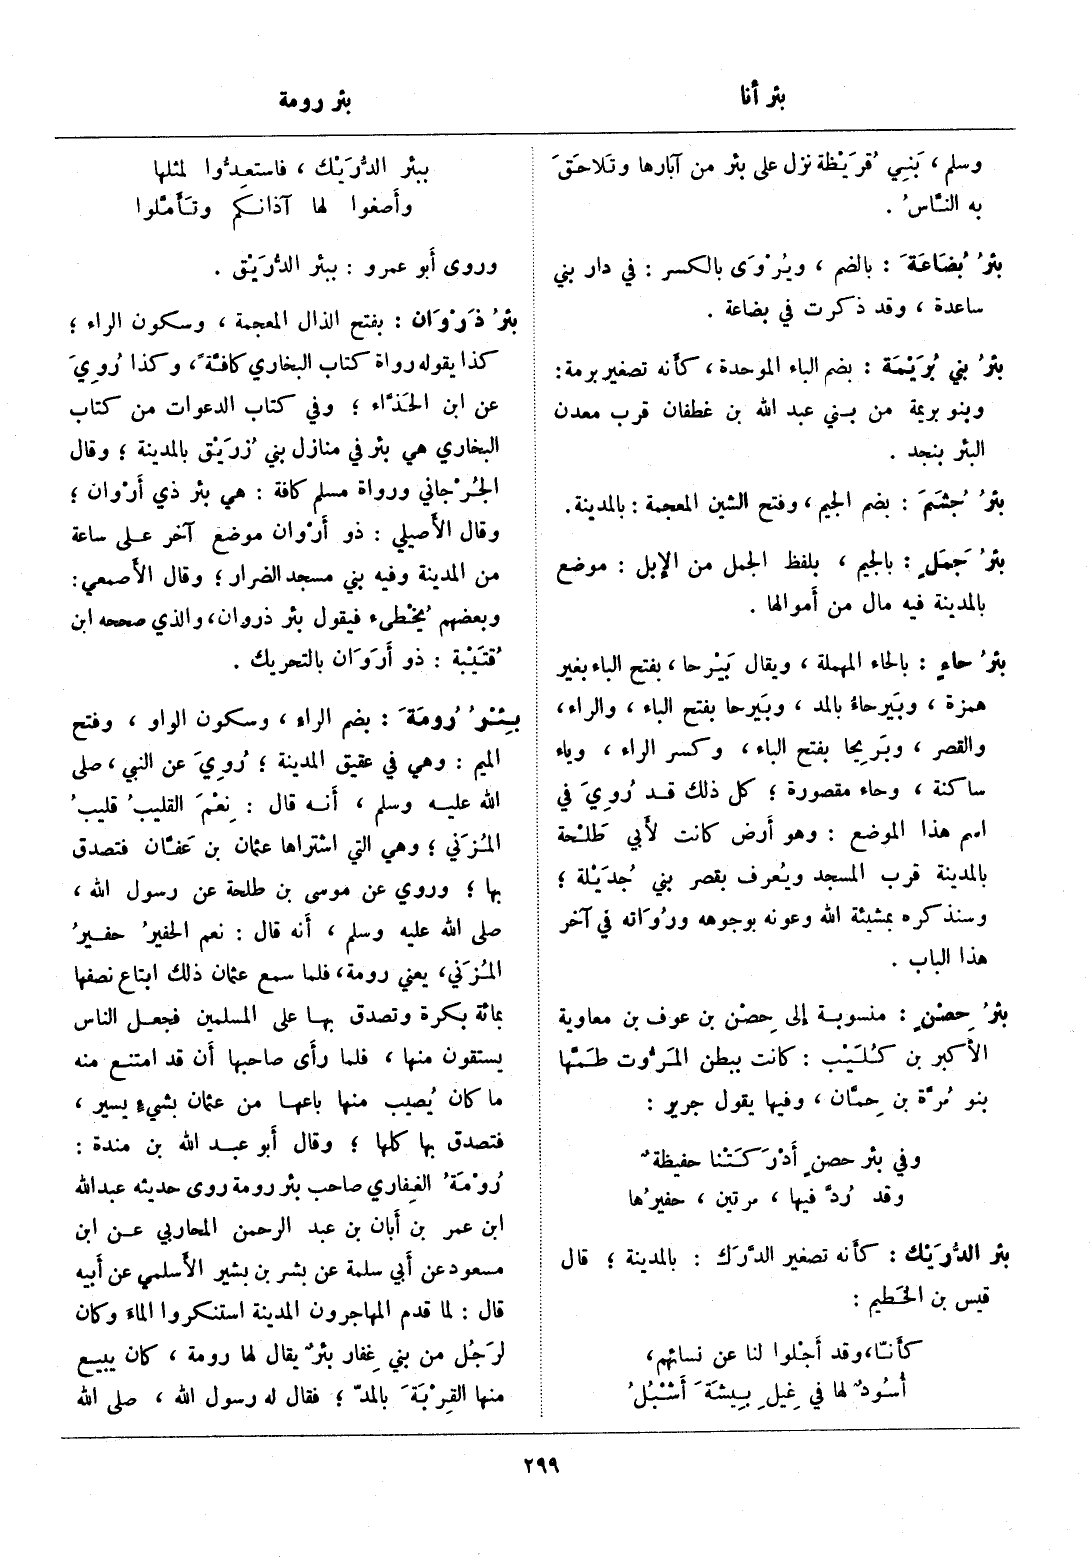 بئر أنا
بئر رومة
وسلم ، بَنِي قُرَيْظة نزل على بئر من آبارها وتَلاحَقَ
به النَّاسُ .
بئرُ بُضَاعَةَ : بالضم ، ويُرْوَى بالكسر : في دار بني
ساعدة ، وقد ذكرت في بضاعة .
بئرُ بني بُرَيْمَة : بضم الباء الموحدة ، كأنه تصغير برمة :
وبنو بريمة من بني عبد الله بن غطفان قرب معدن
البئر بنجد .
بئرُ جُشَمَ : بضم الجيم ، وفتح الشين المعجمة : بالمدينة .
بئرُ جَمَلٍ : بالجيم ، بلفظ الجمل من الإبل : موضع
بالمدينة فيه مال من أموالها .
بئرُ حاءٍ : بالحاء المهملة ، ويقال بَيْرحا ، بفتح الباء بغير
همزة ، وبَيرحاءُ بالمد ، وبَيرحا بفتح الباء ، والراء ،
والقصر ، وبَرِيحا بفتح الباء ، وكسر الراء ، وياء
ساكنة ، وحاء مقصورة ؛ كل ذلك قد رُوِيَ في
اسم هذا الموضع : وهو أرض كانت لأبي طَلْحة
بالمدينة قرب المسجد ويُعرف بقصر بني جُدَيْلة ؛
وسنذكره بمشيئة الله وعونه بوجوهه ورُوَاته في آخر
هذا الباب .
بئرُ حِصْنٍ : منسوبة إلى حِصْن بن عوف بن معاوية
الأكبر بن كُلَيْب : كانت ببطن المَرُّوت طَمَّها
بنو مُرَّة بن حِمَّان ، وفيها يقول جرير :
وفي بئر حصنٍ أدْرَكَتْنا حفيظةٌ
وقد رُدَّ فيها ، مرتين ، حفيرُها
بئر الدُّرَيْك : كأنه تصغير الدَّرَك : بالمدينة ؛ قال
قيس بن الخَطيم :
كأنّا، وقد أجْلوا لنا عن نسائهم،
أسُودٌ لها في غِيلِ بِيشَةَ أشْبُلُ
ببئر الدُّرَيْك ، فاستعِدُّوا لمثلها
وأصغوا لها آذانكم وتَأمَّلوا
وروى أبو عمرو : ببئر الدُّرَيْق .
بئرُ ذَرْوَان : بفتح الذال المعجمة ، وسكون الراء ؛
كذا يقوله رواة كتاب البخاري كافَّةً ، وكذا رُوِيَ
عن ابن الحَذَّاء ؛ وفي كتاب الدعوات من كتاب
البخاري هي بئر في منازل بني زُرَيْق بالمدينة ؛ وقال
الجُرْجاني ورواة مسلم كافة : هي بئر ذي أَرْوان ؛
وقال الأَصيلي : ذو أَرْوان موضع آخر على ساعة
من المدينة وفيه بني مسجد الضرار ؛ وقال الأصمعي :
وبعضهم يُخْطىء فيقول بئر ذروان ، والذي صححه ابن
قُتَيْبة : ذو أَرَوَان بالتحريك .
بِئْرُ رُومَةَ : بضم الراء ، وسكون الواو ، وفتح
الميم : وهي في عقيق المدينة ؛ رُوِيَ عن النبي ، صلى
الله عليه وسلم ، أنه قال : نِعْمَ القليبُ قليبُ
المُزَني ؛ وهي التي اشتراها عثمان بن عَفَّان فتصدق
بها ؛ وروي عن موسى بن طلحة عن رسول الله ،
صلى الله عليه وسلم ، أنه قال : نعم الحفيرُ حفيرُ
المُزَني، يعني رومة ، فلما سمع عثمان ذلك ابتاع نصفها
بمائة بكرة وتصدق بها على المسلمين فجعل الناس
يستقون منها ، فلما رأى صاحبها أن قد امتنع منه
ما كان يُصيب منها باعها من عثمان بشيءٍ يسير ،
فتصدق بها كلها ؛ وقال أبو عبد الله بن مندة :
رُوْمَةُ الغِفاري صاحب بئر رومة روى حديثه عبدالله
ابن عمر بن أبان بن عبد الرحمن المحاربي عن ابن
مسعود عن أبي سلمة عن بشر بن بشير الأسلمي عن أبيه
قال : لما قدم المهاجرون المدينة استنكروا الماءَ وكان
لرَجُل من بني غِفار بئرٌ يقال لها رومة ، كان يبيع
منها القِرْبَةَ بالمدّ ؛ فقال له رسول الله ، صلى الله
٢٩٩